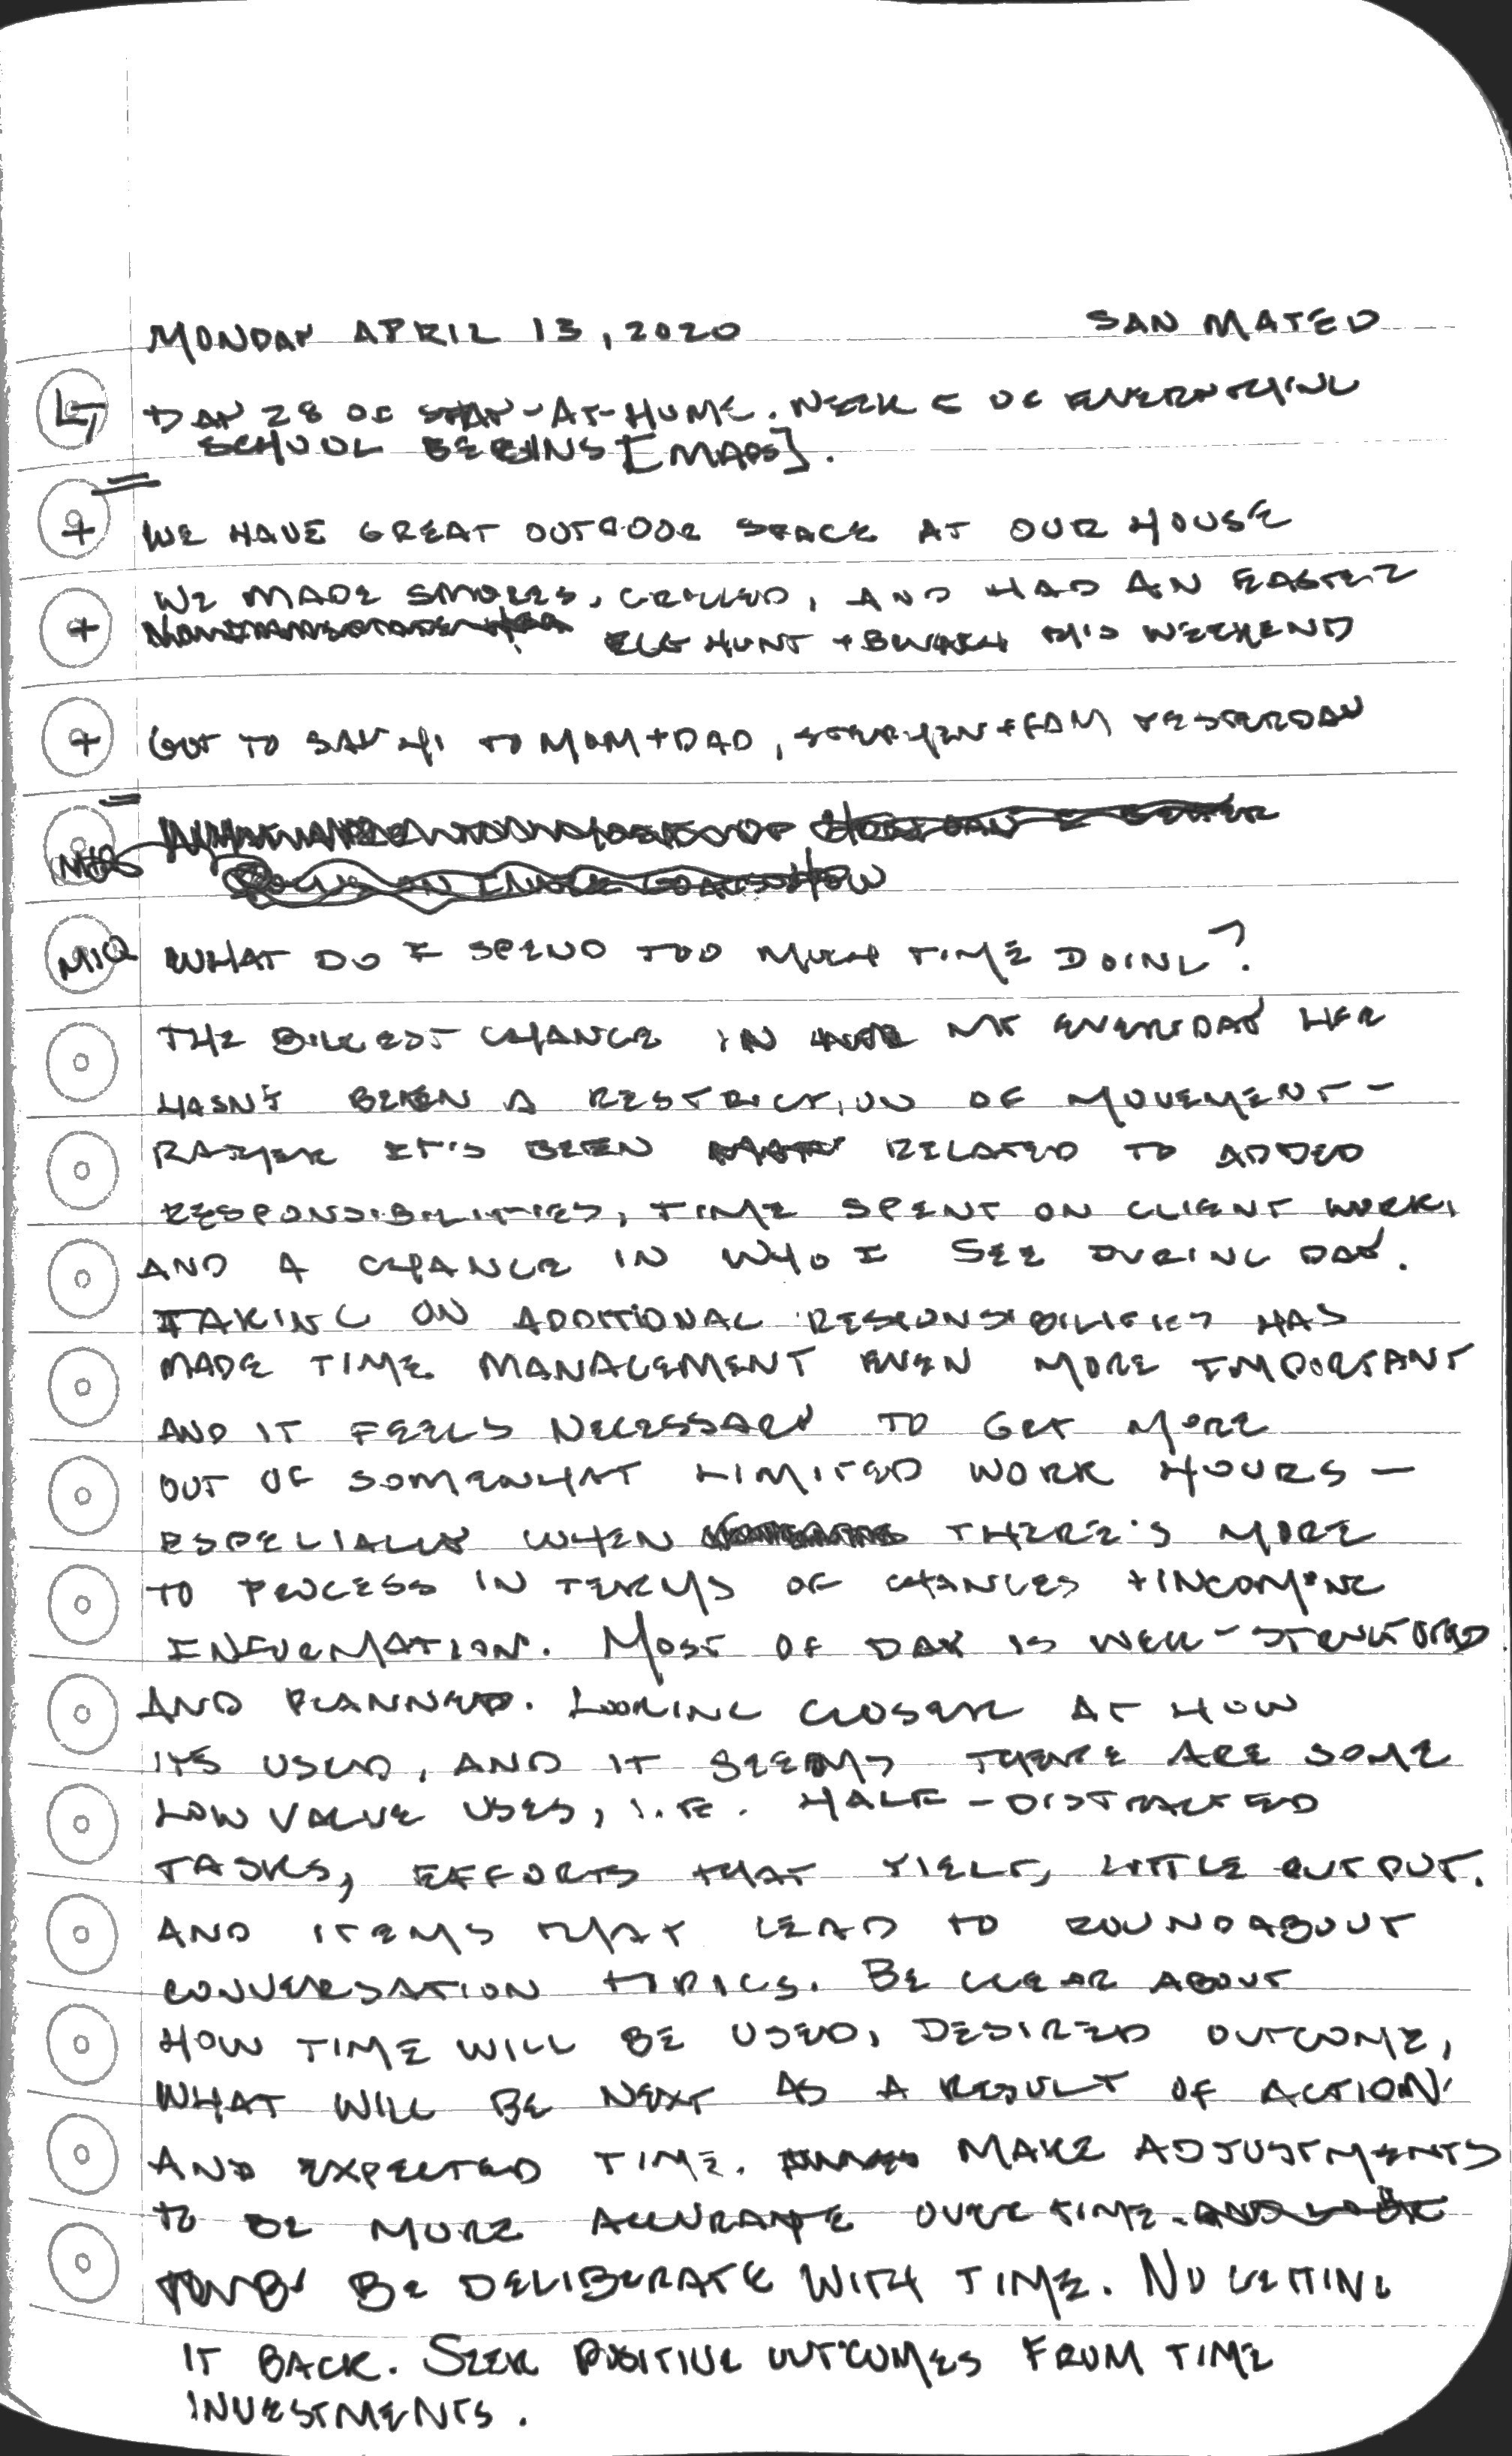 MONDAY APRIL 13, 2020 SAN MATEO
LT DAY 28 OF STAY-AT-HOME. WEEK 5 OF EVERYTHING
SCHOOL BEGINS [MAPS].
+ WE HAVE GREAT OUTDOOR SPACE AT OUR HOUSE
+ WE MADE SMORES, GRILLED, AND HAD AN EASTER
EGG HUNT + BRUNCH THIS WEEKEND
+ GOT TO SAY HI TO MOM + DAD, STEPHEN + FAM YESTERDAY
MIQ WHAT DO I SPEND TOO MUCH TIME DOING?
THE BIGGEST CHANGE IN MY EVERYDAY LIFE
HASN'T BEEN A RESTRICTION OF MOVEMENT -
RATHER IT'S BEEN RELATED TO ADDED
RESPONSIBILITIES, TIME SPENT ON CLIENT WORK,
AND A CHANGE IN WHO I SEE DURING DAY.
TAKING ON ADDITIONAL RESPONSIBILITIES HAS
MADE TIME MANAGEMENT EVEN MORE IMPORTANT
AND IT FEELS NECESSARY TO GET MORE
OUT OF SOMEWHAT LIMITED WORK HOURS —
ESPECIALLY WHEN THERE'S MORE
TO PROCESS IN TERMS OF CHANGES + INCOMING
INFORMATION. MOST OF DAY IS WELL-STRUCTURED
AND PLANNED. LOOKING CLOSER AT HOW
ITS USED, AND IT SEEMS THERE ARE SOME
LOW VALUE USES, I.E. HALF-DISTRACTED
TASKS, EFFORTS THAT YIELD LITTLE OUTPUT,
AND ITEMS THAT LEAD TO ROUNDABOUT
CONVERSATION TOPICS. BE CLEAR ABOUT
HOW TIME WILL BE USED, DESIRED OUTCOME,
WHAT WILL BE NEXT AS A RESULT OF ACTION,
AND EXPECTED TIME. MAKE ADJUSTMENTS
TO BE MORE ACCURATE OVER TIME.
BE DELIBERATE WITH TIME. NO GETTING
IT BACK. SEEK POSITIVE OUTCOMES FROM TIME
INVESTMENTS.